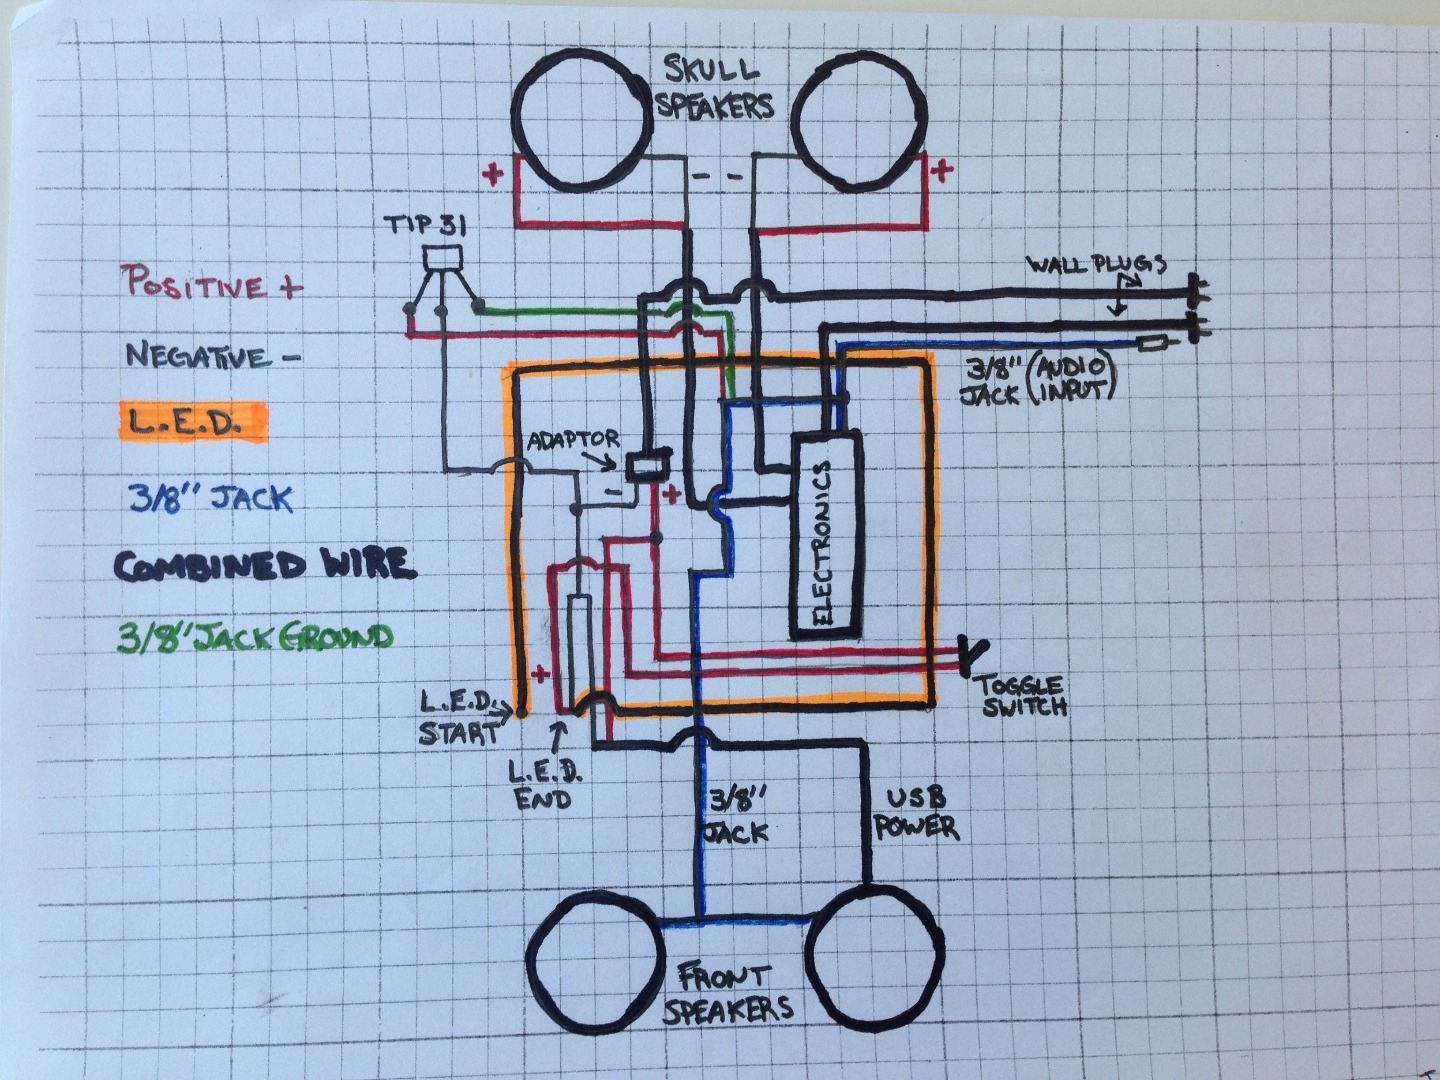 SKULL
SPEAKERS
+
- -
+
TIP 31
WALL PLUGS
POSITIVE +
NEGATIVE -
L.E.D.
3/8" JACK
COMBINED WIRE
3/8" JACK GROUND
3/8" (AUDIO
JACK INPUT)
ADAPTOR
-
+
ELECTRONICS
+
L.E.D.
START
TOGGLE
SWITCH
L.E.D.
END
3/8"
JACK
USB
POWER
FRONT
SPEAKERS